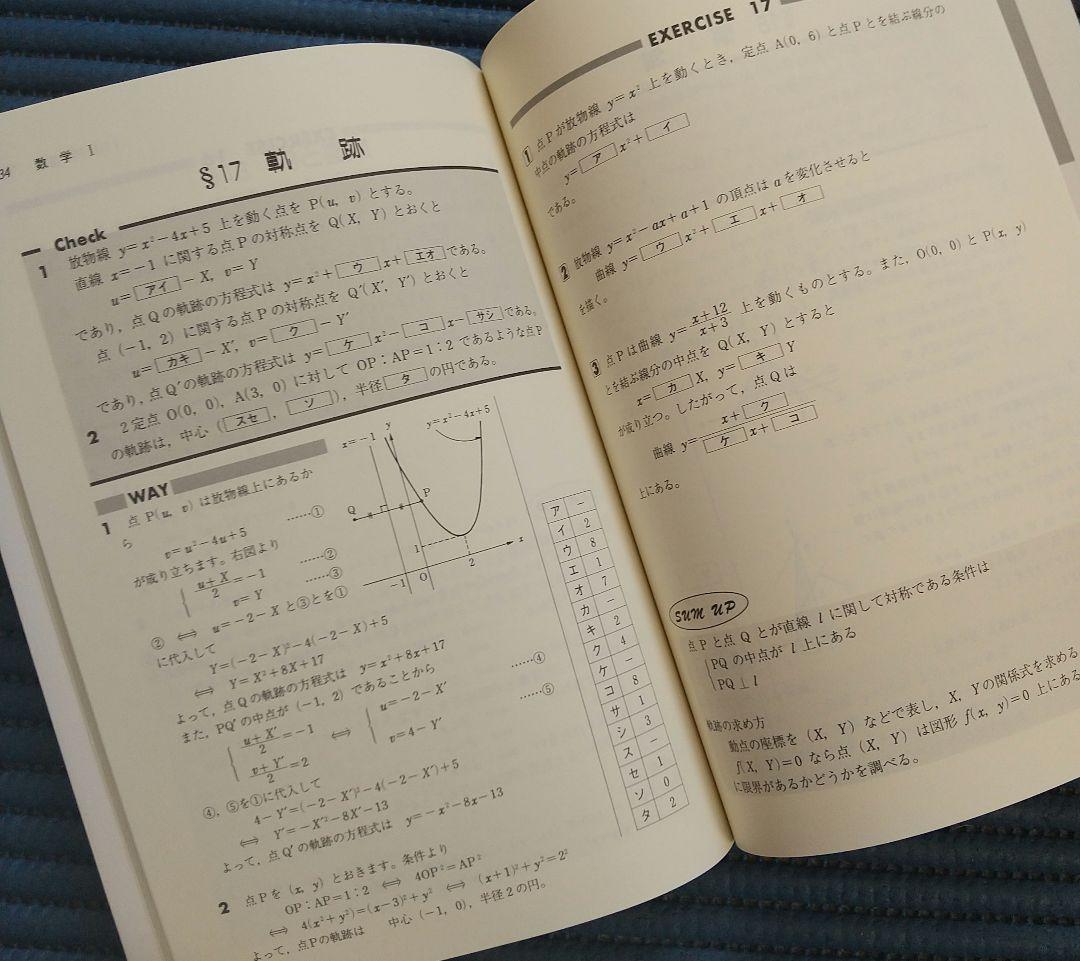 34 数学 I
§17 軌跡
Check
1 放物線 y=x²−4x+5 上を動く点を P(u, v) とする。
直線 x=−1 に関する点Pの対称点を Q(X, Y) とおくと
u=[アイ]−X, v=Y
であり，点Qの軌跡の方程式は y=x²+[ウ]x+[エオ]である。
点 (−1, 2) に関する点Pの対称点を Q′(X′, Y′) とおくと
u=[カキ]−X′, v=[ク]−Y′
であり，点Q′の軌跡の方程式は y=[ケ]x²−[コ]x−[サシ]である。
2 2定点 O(0, 0), A(3, 0) に対して OP：AP=1：2 であるような点P
の軌跡は，中心 ([スセ], [ソ])，半径[タ]の円である。
WAY
1 点 P(u, v) は放物線上にあるか
ら
v=u²−4u+5 ……①
が成り立ちます。右図より
{ (u+X)/2=−1 ……②
v=Y ……③
② ⇔ u=−2−X と③とを①
に代入して
Y=(−2−X)²−4(−2−X)+5
⇔ Y=X²+8X+17
よって，点Qの軌跡の方程式は y=x²+8x+17
また，PQ′の中点が (−1, 2) であることから
{ (u+X′)/2=−1 ⇔ { u=−2−X′ ……④
(v+Y′)/2=2 v=4−Y′ ……⑤
④，⑤を①に代入して
4−Y′=(−2−X′)²−4(−2−X′)+5
⇔ Y′=−X′²−8X′−13
よって，点Q′の軌跡の方程式は y=−x²−8x−13
2 点Pを (x, y) とおきます。条件より
OP：AP=1：2 ⇔ 4OP²=AP²
⇔ 4(x²+y²)=(x−3)²+y² ⇔ (x+1)²+y²=2²
よって，点Pの軌跡は 中心 (−1, 0)，半径2の円。
x=−1
y
y=x²−4x+5
Q
P
1
−1
O
2
x
ア −
イ 2
ウ 8
エ 1
オ 7
カ −
キ 2
ク 4
ケ −
コ 8
サ 1
シ 3
ス −
セ 1
ソ 0
タ 2
EXERCISE 17
1 点Pが放物線 y=x² 上を動くとき，定点 A(0, 6) と点Pとを結ぶ線分の
中点の軌跡の方程式は
y=[ア]x²+[イ]
である。
2 放物線 y=x²−ax+a+1 の頂点は a を変化させると
曲線 y=[ウ]x²+[エ]x+[オ]
を描く。
3 点Pは曲線 y=(x+12)/(x+3) 上を動くものとする。また，O(0, 0) と P(x, y)
とを結ぶ線分の中点を Q(X, Y) とすると
x=[カ]X, y=[キ]Y
が成り立つ。したがって，点Qは
曲線 y=(x+[ク])/([ケ]x+[コ])
上にある。
SUM UP
点Pと点Qとが直線 l に関して対称である条件は
{ PQの中点が l 上にある
PQ⊥l
軌跡の求め方
動点の座標を (X, Y) などで表し，X, Yの関係式を求める
f(X, Y)=0 なら点 (X, Y) は図形 f(x, y)=0 上にある
に限界があるかどうかを調べる。